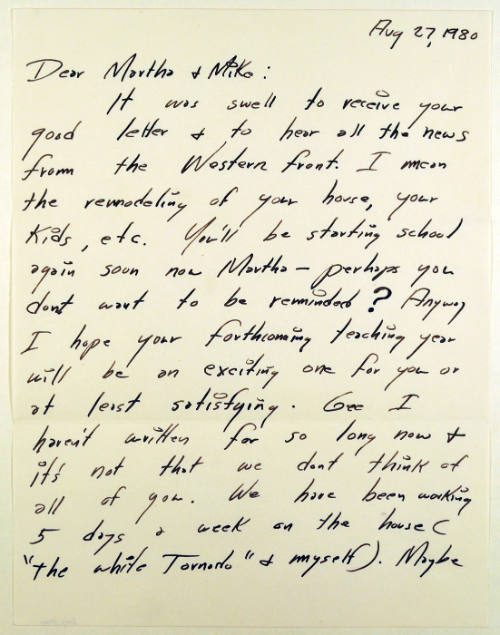 Aug 27, 1980
Dear Martha & Mike:
It was swell to receive your
good letter & to hear all the news
from the Western front. I mean
the remodeling of your house, your
kids, etc. You'll be starting school
again soon now Martha – perhaps you
dont want to be reminded? Anyway
I hope your forthcoming teaching year
will be an exciting one for you or
at least satisfying. Gee I
haven't written for so long now &
it's not that we dont think of
all of you. We have been working
5 days a week on the house (
"the white Tornado" & myself). Maybe